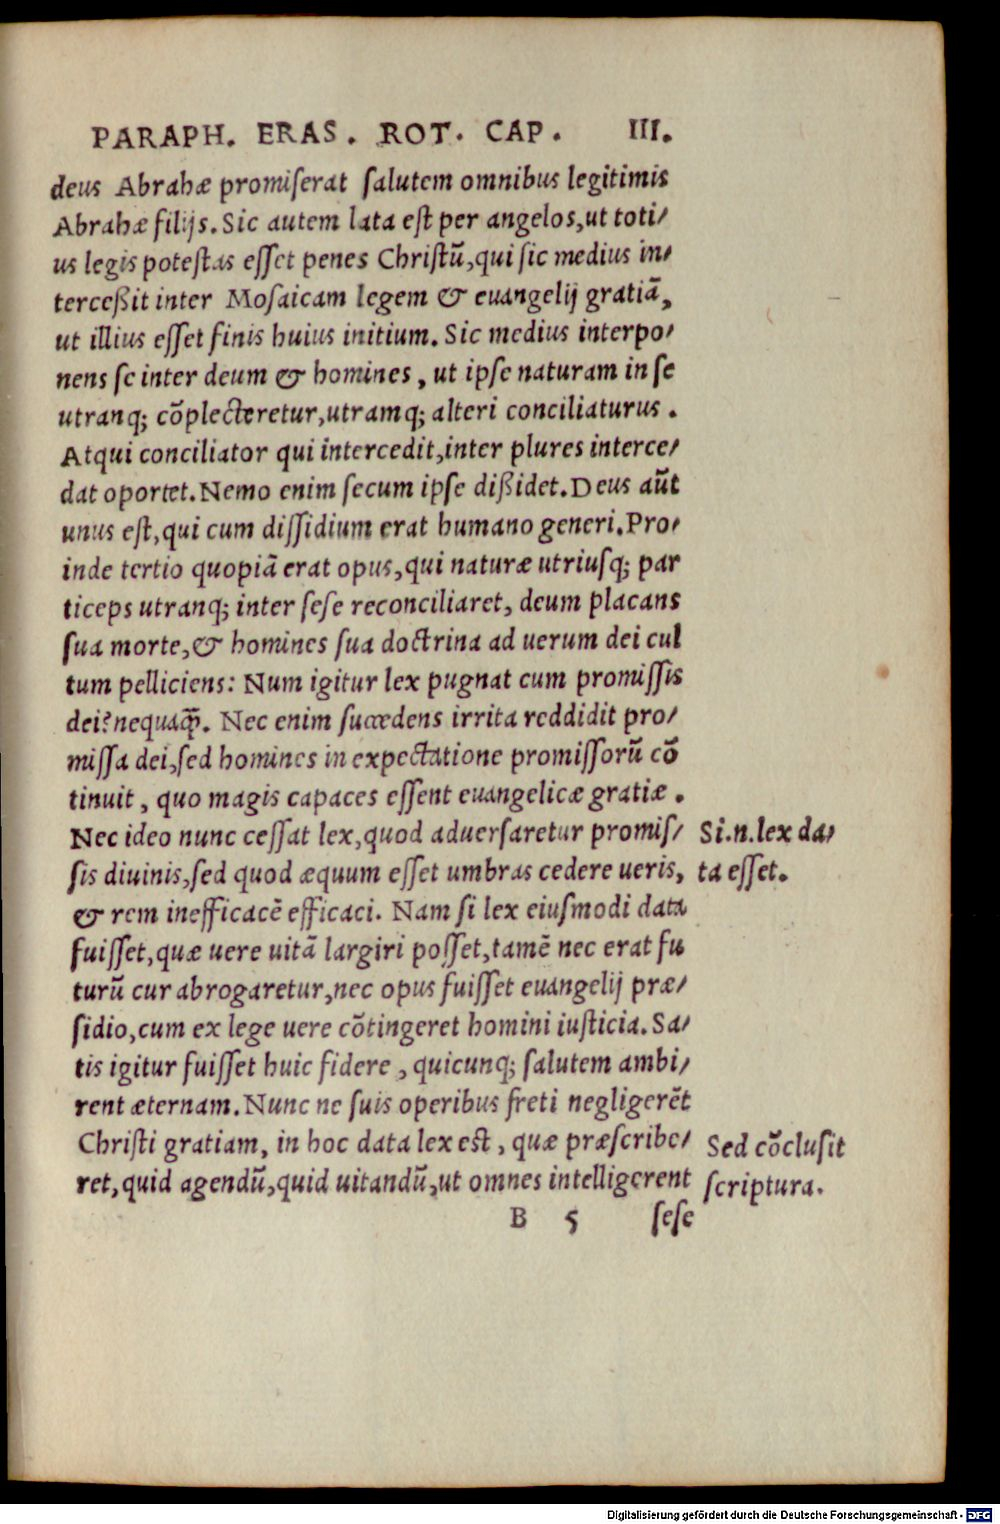 PARAPH. ERAS. ROT. CAP. III.
deus Abrahæ promiserat salutem omnibus legitimis
Abrahæ filijs. Sic autem lata est per angelos, ut toti⸗
us legis potestas esset penes Christũ, qui sic medius in⸗
terceßit inter Mosaicam legem & euangelij gratiã,
ut illius esset finis huius initium. Sic medius interpo⸗
nens se inter deum & homines, ut ipse naturam in se
utranq; cõplecteretur, utramq; alteri conciliaturus.
Atqui conciliator qui intercedit, inter plures interce⸗
dat oportet. Nemo enim secum ipse dißidet. Deus aũt
unus est, qui cum dissidium erat humano generi. Pro⸗
inde tertio quopiã erat opus, qui naturæ utriusq; par
ticeps utranq; inter sese reconciliaret, deum placans
sua morte, & homines sua doctrina ad uerum dei cul
tum pelliciens: Num igitur lex pugnat cum promissis
dei? nequaq̃. Nec enim succedens irrita reddidit pro⸗
missa dei, sed homines in expectatione promissorũ cõ
tinuit, quo magis capaces essent euangelicæ gratiæ.
Nec ideo nunc cessat lex, quod aduersaretur promis⸗
sis diuinis, sed quod æquum esset umbras cedere ueris,
& rem inefficacẽ efficaci. Nam si lex eiusmodi data
fuisset, quæ uere uitã largiri posset, tamẽ nec erat fu
turũ cur abrogaretur, nec opus fuisset euangelij præ⸗
sidio, cum ex lege uere cõtingeret homini iusticia. Sa⸗
tis igitur fuisset huic fidere, quicunq; salutem ambi⸗
rent æternam. Nunc ne suis operibus freti negligerẽt
Christi gratiam, in hoc data lex est, quæ præscribe⸗
ret, quid agendũ, quid uitandũ, ut omnes intelligerent
B 5 sese
Si.n.lex da⸗
ta esset.
Sed cõclusit
scriptura.
Digitalisierung gefördert durch die Deutsche Forschungsgemeinschaft - DFG